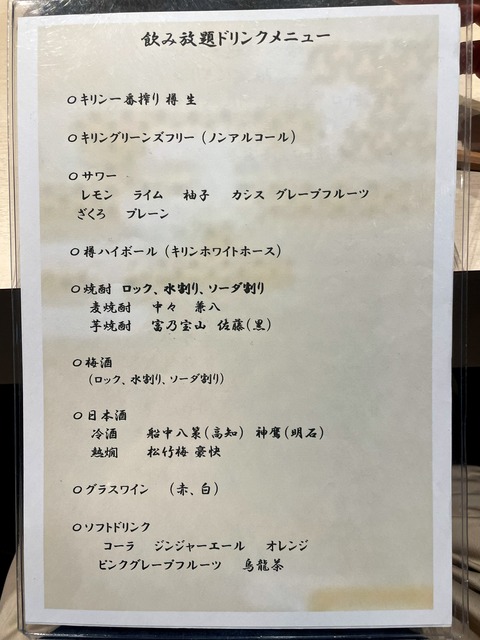 飲み放題ドリンクメニュー
○キリン一番搾り 樽 生
○キリングリーンズフリー（ノンアルコール）
○サワー
レモン ライム 柚子 カシス グレープフルーツ
ざくろ プレーン
○樽ハイボール（キリンホワイトホース）
○焼酎 ロック、水割り、ソーダ割り
麦焼酎 中々 兼八
芋焼酎 富乃宝山 佐藤（黒）
○梅酒
（ロック、水割り、ソーダ割り）
○日本酒
冷酒 船中八策（高知） 神鷹（明石）
熱燗 松竹梅 豪快
○グラスワイン （赤、白）
○ソフトドリンク
コーラ ジンジャーエール オレンジ
ピンクグレープフルーツ 烏龍茶